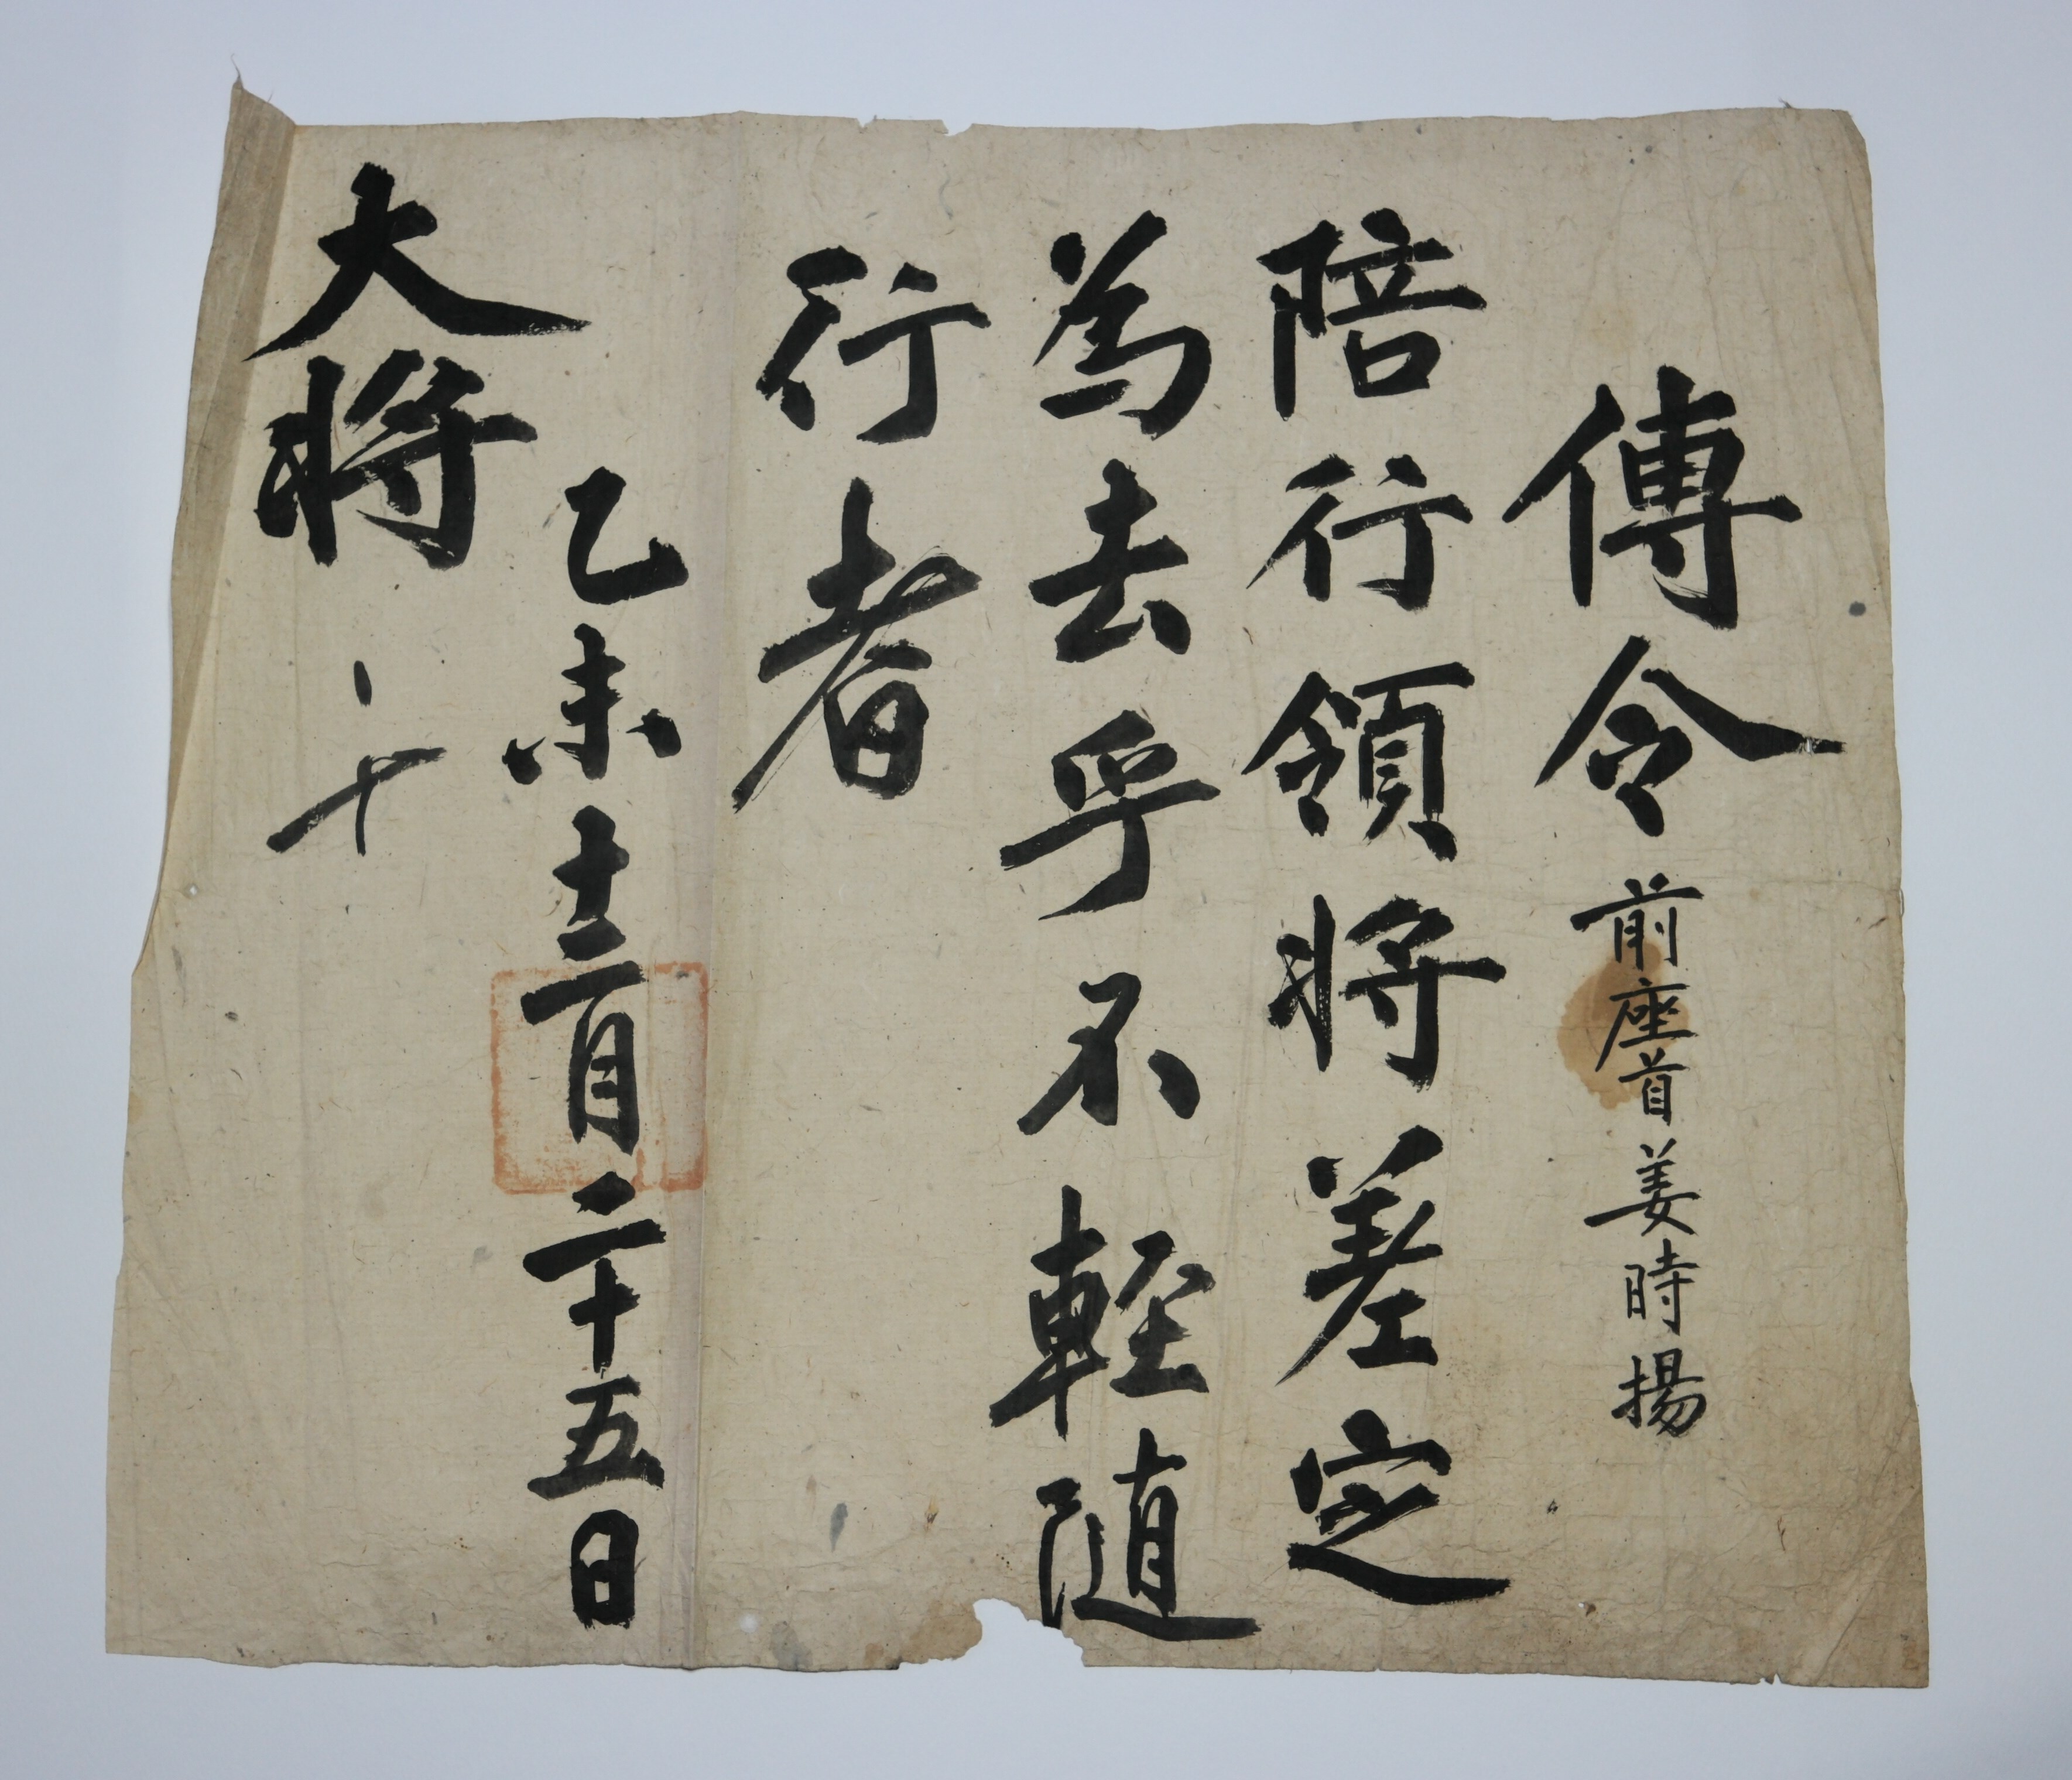 傳令 前座首姜時揚
陪行領將差定
為去乎不輕隨
行者
乙未十二月二十五日
大將